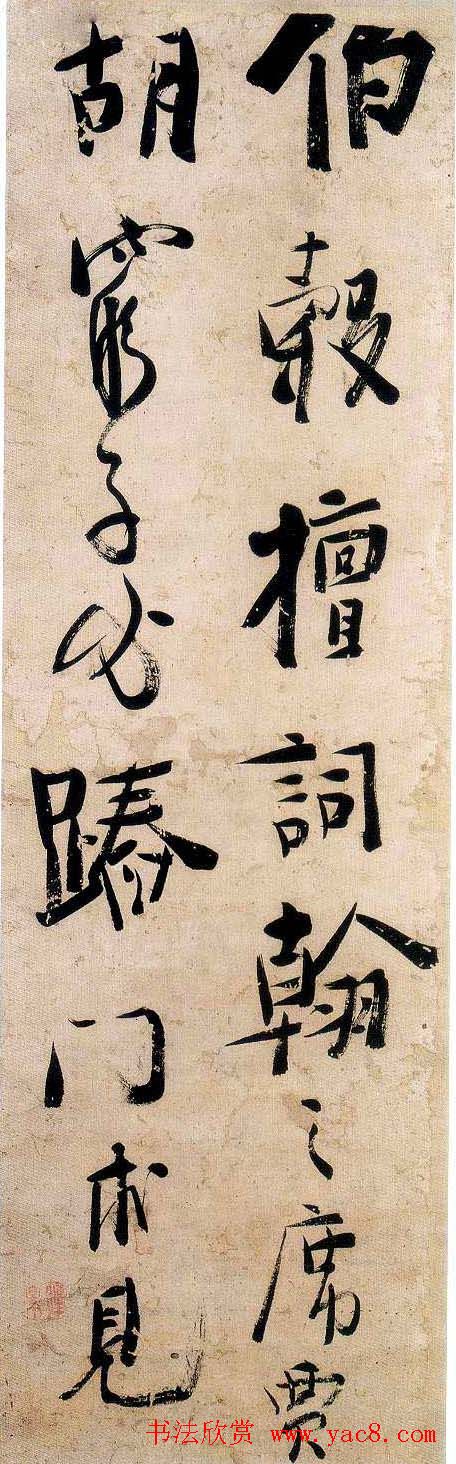 伯穀擅詞翰之席賈
胡窮子必踵門求見
书法欣赏 www.yac8.com